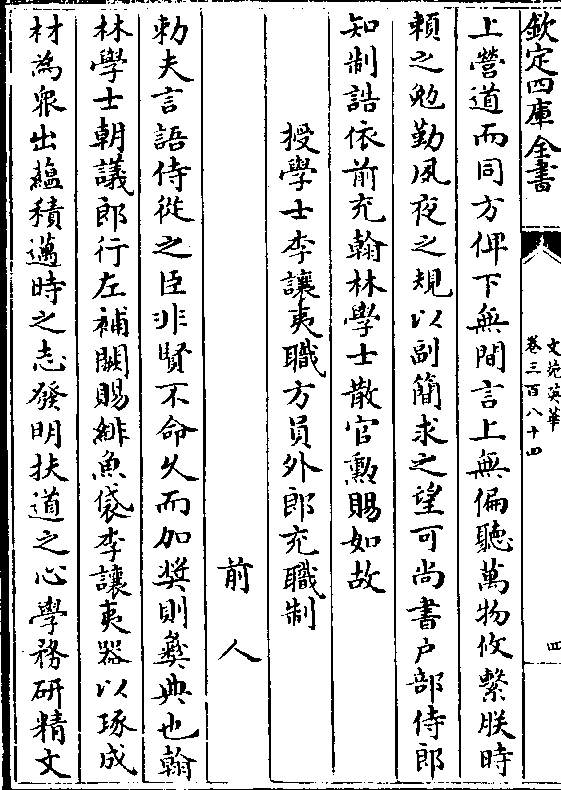 欽定四庫全書
文苑英華
卷三百八十四
四
上營道而同方俾下無間言上無偏聽萬物攸繫朕時
賴之勉勤夙夜之規以副簡求之望可尚書户部侍郎
知制誥依前充翰林學士散官勲賜如故
授學士李讓夷職方員外郎充職制
前人
勑夫言語侍從之臣非賢不命久而加奬則彛典也翰
林學士朝議郎行左補闕賜緋魚袋李讓夷器以琢成
材為衆出藴積邁時之志發明扶道之心學務研精文